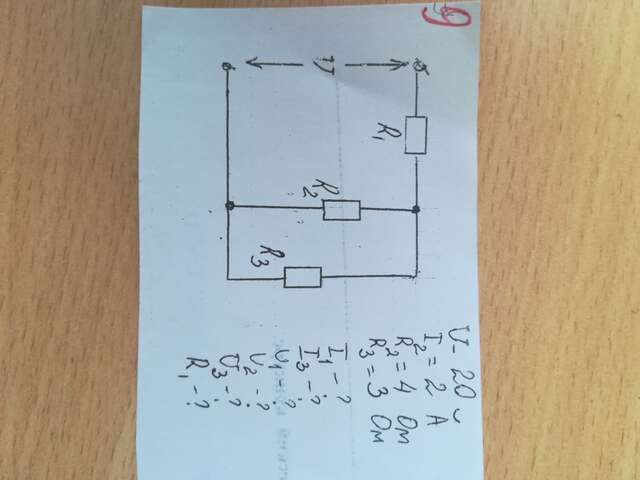 9
U
R1
R2
R3
U - 20 в
I2 = 2 А
R2 = 4 Ом
R3 = 3 Ом
I1 - ?
I3 - ?
U1 - ?
U2 - ?
U3 - ?
R1 - ?